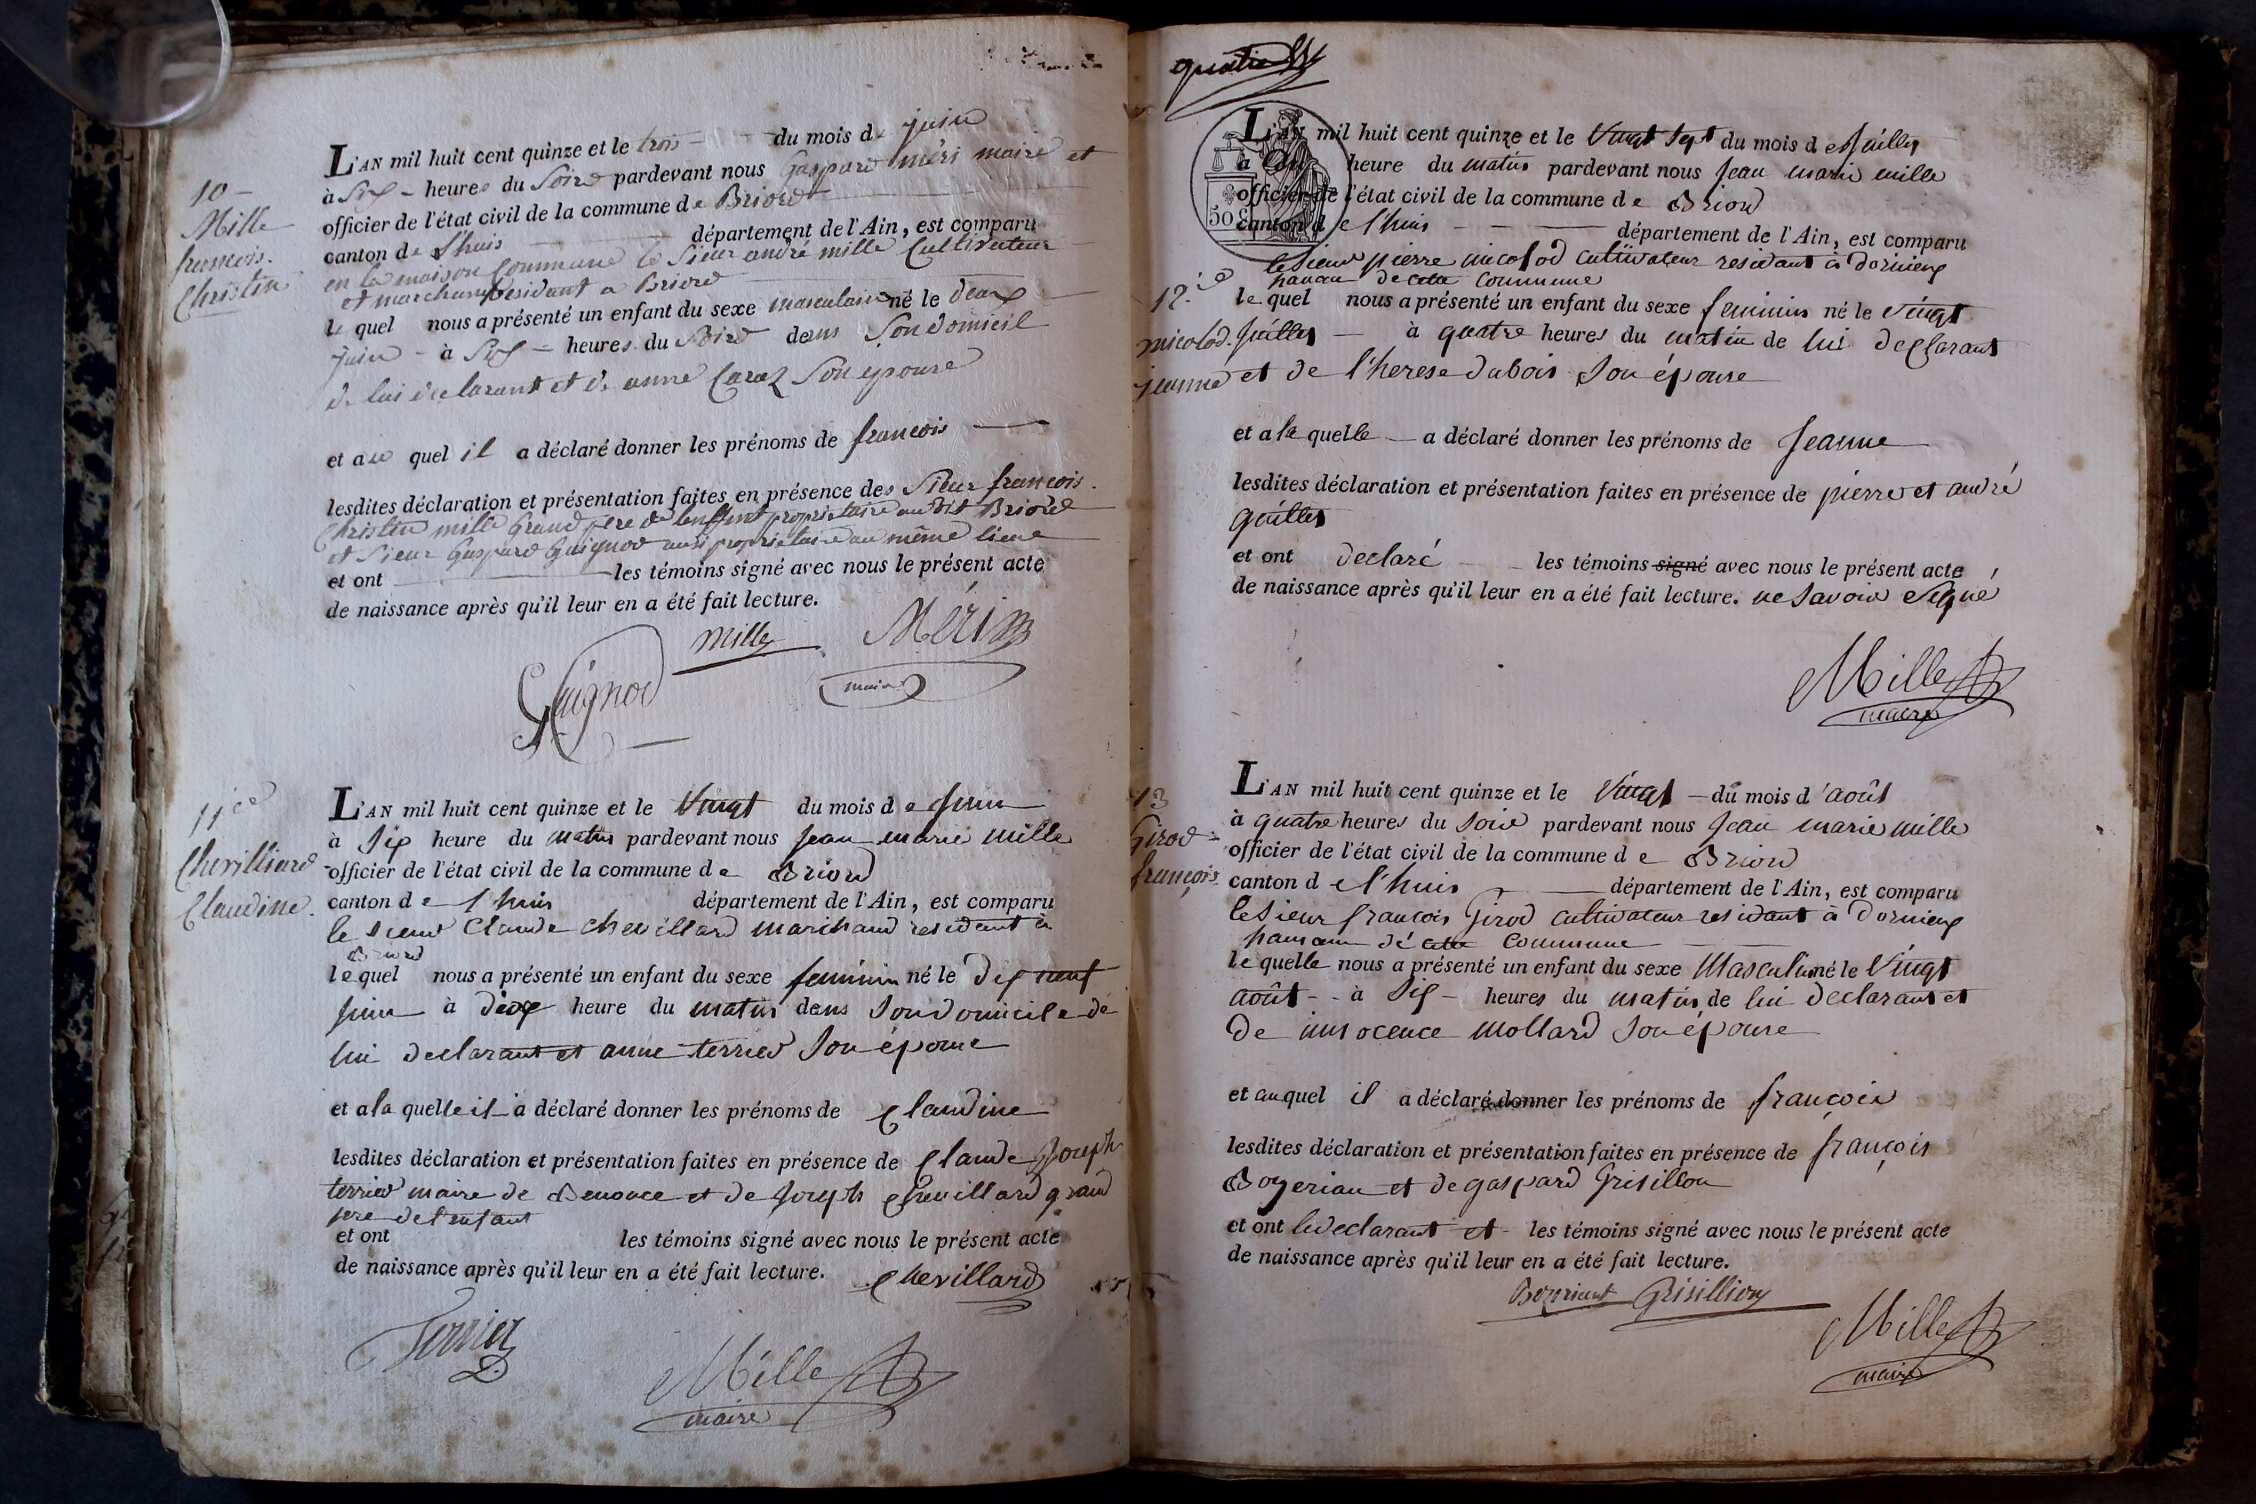 10
Mille
françois.
Christin
L'AN mil huit cent quinze et le trois du mois de juin
à Six heures du Soird pardevant nous Gaspard méri maire et
officier de l'état civil de la commune de Briord
canton de l'huis département de l'Ain, est comparu
en la maison Commune le Sieur andré mille Cultivateur
et marchand résidant a Briord
le quel nous a présenté un enfant du sexe masculain né le deux
juin à Six heures du Soird dans Son domicil
de lui déclarant et de anne Caraz Son epouse
et au quel il a déclaré donner les prénoms de françois
lesdites déclaration et présentation faites en présence des Sieur françois
Christin mille Grand pere de lenffent propriétaire au dit Briord
et Sieur Gaspard Guignod ausi proprietaire au même lieue
et ont les témoins signé avec nous le présent acte
de naissance après qu'il leur en a été fait lecture.
mille Méri
maire
Guignod
11e
Chevilliard
Claudine.
L'AN mil huit cent quinze et le Vingt du mois de Juin
à Six heure du matin pardevant nous Jean marie mille
officier de l'état civil de la commune de Briord
canton de l'huis département de l'Ain, est comparu
le sieur Claude chevillard marchand residant à
Briord
lequel nous a présenté un enfant du sexe feminin né le Dix neuf
Juin à dix heure du matin dans Son domicile de
lui declarant et anne terrier Son épouse
et a la quelle il a déclaré donner les prénoms de Claudine
lesdites déclaration et présentation faites en présence de Claude Joseph
terrier maire de Benonce et de Joseph Chevillard grand
pere de l'enfant
et ont les témoins signé avec nous le présent acte
de naissance après qu'il leur en a été fait lecture. Chevillard
Terrier
Mille
maire
quatre
50 C
L'AN mil huit cent quinze et le Vingt Sept du mois de Juillet
à heure du matin pardevant nous Jean marie mille
officier de l'état civil de la commune de Briord
canton de l'huis département de l'Ain, est comparu
le Sieur pierre micolod cultivateur residant à dornieux
hamau de cette commune
12e
micolod
jeanne
le quel nous a présenté un enfant du sexe feminin né le vingt
Juillet à quatre heures du matin de lui declarant
et de therese dubois Son épouse
et a la quelle a déclaré donner les prénoms de Jeanne
lesdites déclaration et présentation faites en présence de pierre et andré
et ont declaré les témoins signé avec nous le présent acte
de naissance après qu'il leur en a été fait lecture. ne Savoir Signé
Mille
maire
13
Girod
françois
L'AN mil huit cent quinze et le Vingt du mois d'août
à quatre heures du Soir pardevant nous Jean marie mille
officier de l'état civil de la commune de Briord
canton de l'huis département de l'Ain, est comparu
le Sieur françois Girod cultivateur residant à dornieux
hamau de cette commune
le quelle nous a présenté un enfant du sexe Masculin né le Vingt
août à Six heures du matin de lui declarant et
de innocence mollard Son épouse
et au quel il a déclaré donner les prénoms de françois
lesdites déclaration et présentation faites en présence de françois
Boyerian et de gaspard Grisillon
et ont le declarant et les témoins signé avec nous le présent acte
de naissance après qu'il leur en a été fait lecture.
Grisillion
Mille
maire